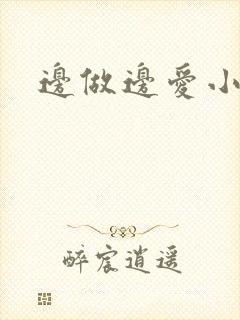 邊做邊愛小
醉宸逍遥